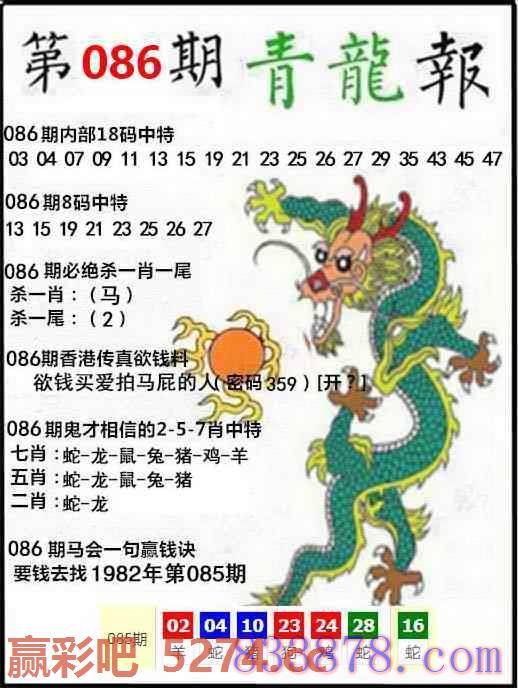 第086期青龍報
086期内部18码中特
03 04 07 09 11 13 15 19 21 23 25 26 27 29 35 43 45 47
086期8码中特
13 15 19 21 23 25 26 27
086期必绝杀一肖一尾
杀一肖:(马)
杀一尾:(2)
086期香港传真欲钱料
欲钱买爱拍马屁的人(密码359)[开?]
086期鬼才相信的2-5-7肖中特
七肖:蛇-龙-鼠-兔-猪-鸡-羊
五肖:蛇-龙-鼠-兔-猪
二肖:蛇-龙
086期马会一句赢钱诀
要钱去找1982年第085期
085期 02 04 10 23 24 28 16
羊 蛇 猪 狗 鸡 蛇 蛇
赢彩吧
838878.com